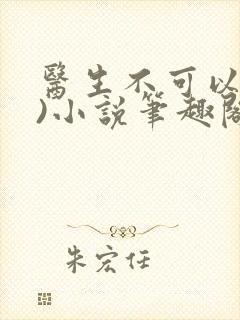 醫生不可以
)小說筆趣閣
朱宏任